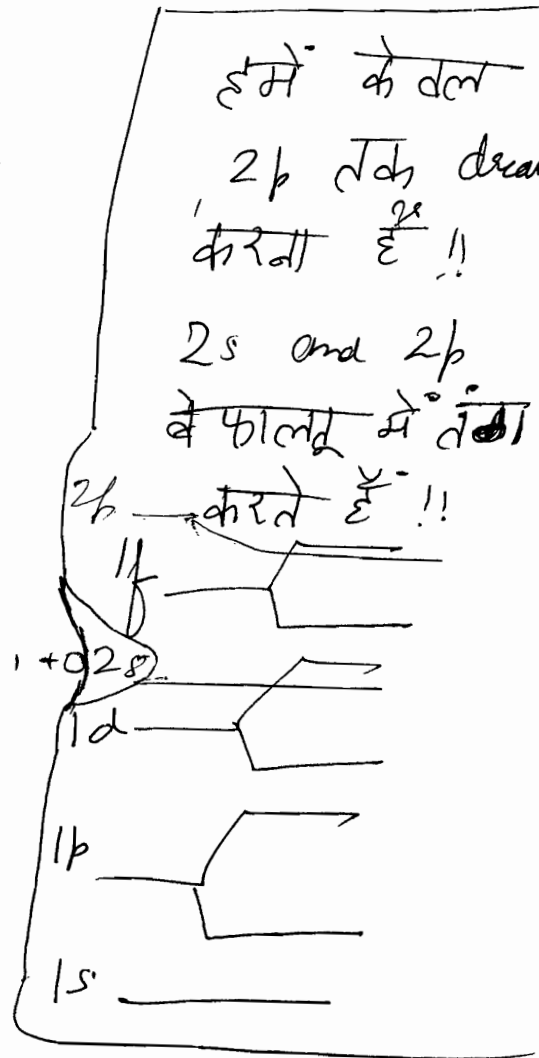 हमें केवल
2p तक draw
करना है !!
2s and 2p
बे फालतू में तंगा
करते हैं !!
2p
1f
1 + 0 2s
1d
1p
1s